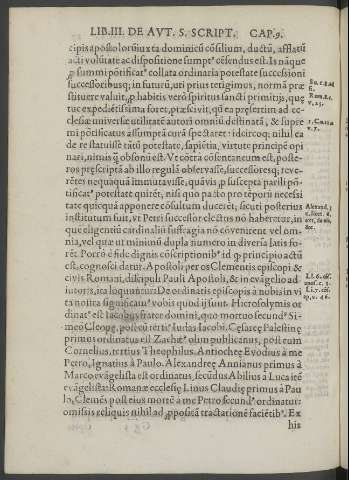 LIB. III. DE AVT. S. SCRIPT. CAP. 9.
cipis apostolorū iuxta dominicū cōsilium, ductū, afflatū
ac di volūtate ac dispositione sumpt' cēsendus est. Is nāque
summi pōtificat' collata ordinaria potestate successioni
successoribusq; in futurū, uti prius tetigimus, normā præ
stituere valuit, habitis veró spiritus sancti primitijs, que
tuto expeditissima foret, præscivit, qd ea præsertim ad ec-
clesiæ universæ utilitatē autorū omniū destinatā, & supre
mi pōtificatus assumptā curā spectaret: idcircoq; nihil ea
de re statuisse tātū potestate, sapiētia, virtute principē opi
nari, nimis qd obsonū est. Vt cōtra cōsentaneum est, poste-
ros præscriptā ab illo regulā observasse, successoresq; reve-
rētes nequaquā immutavisse, quāvis suscepta parili pō-
tificat' potestate quirēt, nisi quo pacto pro tēporū necessi
tate quicquā apponere cōsultum ducerēt: sicuti posterius
institutum fuit, vt Petri successor electus nō haberetur, in
que eligentiū cardinaliū suffragia nō cōvenirent vel om-
nia, vel quæ ut minimū dupla numero in diversa latis fo-
rēt. Porro è fide dignis cōscriptionib' id principio actū
est, cognosci datur. Apostoli per os Clementis episcopi &
civis Romani, discipuli Pauli Apostoli, & in evangelio ad
iutoris, ita loquuntur. De ordinatis episcopis à nobis in vi
ta nostra significam' vobis quod ij sunt. Hierosolymis or
dinat' est Iacobus frater domini, quo mortuo secund' Si-
meō Cleopę, post eū terti' Iudas Iacobi. Cęsareę Palestinę
primus ordinatus est Zachę' olim publicanus, post eum
Cornelius, tertius Theophilus. Antiocheę Evodius à me
Petro, Ignatius à Paulo. Alexandreę Annianus primus à
Marco evāgelista est ordinatus, secūdus Abilius à Luca itē
evāgelista: Romanæ ecclesię Linus Claudię primus à Pau
lo, Clemēs post eius mortē à me Petro secund' ordinatur:
omissis reliquis nihil ad pposita tractationē faciētib'. Ex
his